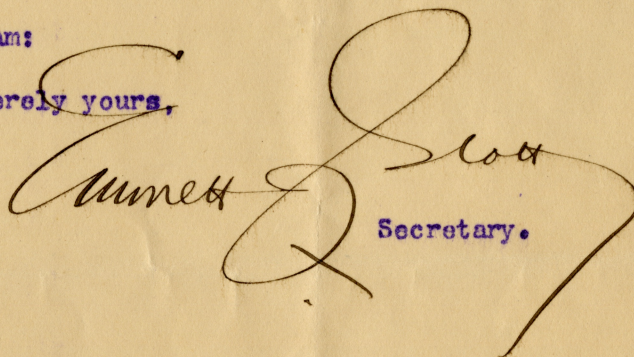 am:
erely yours,
Emmett J Scott
Secretary.